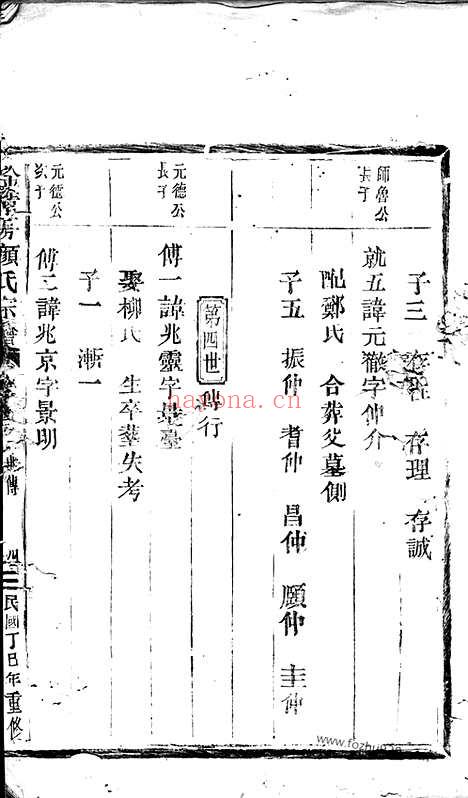 師魯公
長子
子三 存理 存誠
就五諱元徵字仲介
配鄭氏 合葬父墓側
子五 振仲 耆仲 昌仲 願仲 圭仲
第四世 傅行
元德公
長子
傅一諱兆靈字景臺
娶柳氏 生卒葬失考
子一 漸一
元德公
次子
傅二諱兆京字景明
顏氏宗譜 世傳 民國丁巳年重修
hayona.cn
www.fozhu